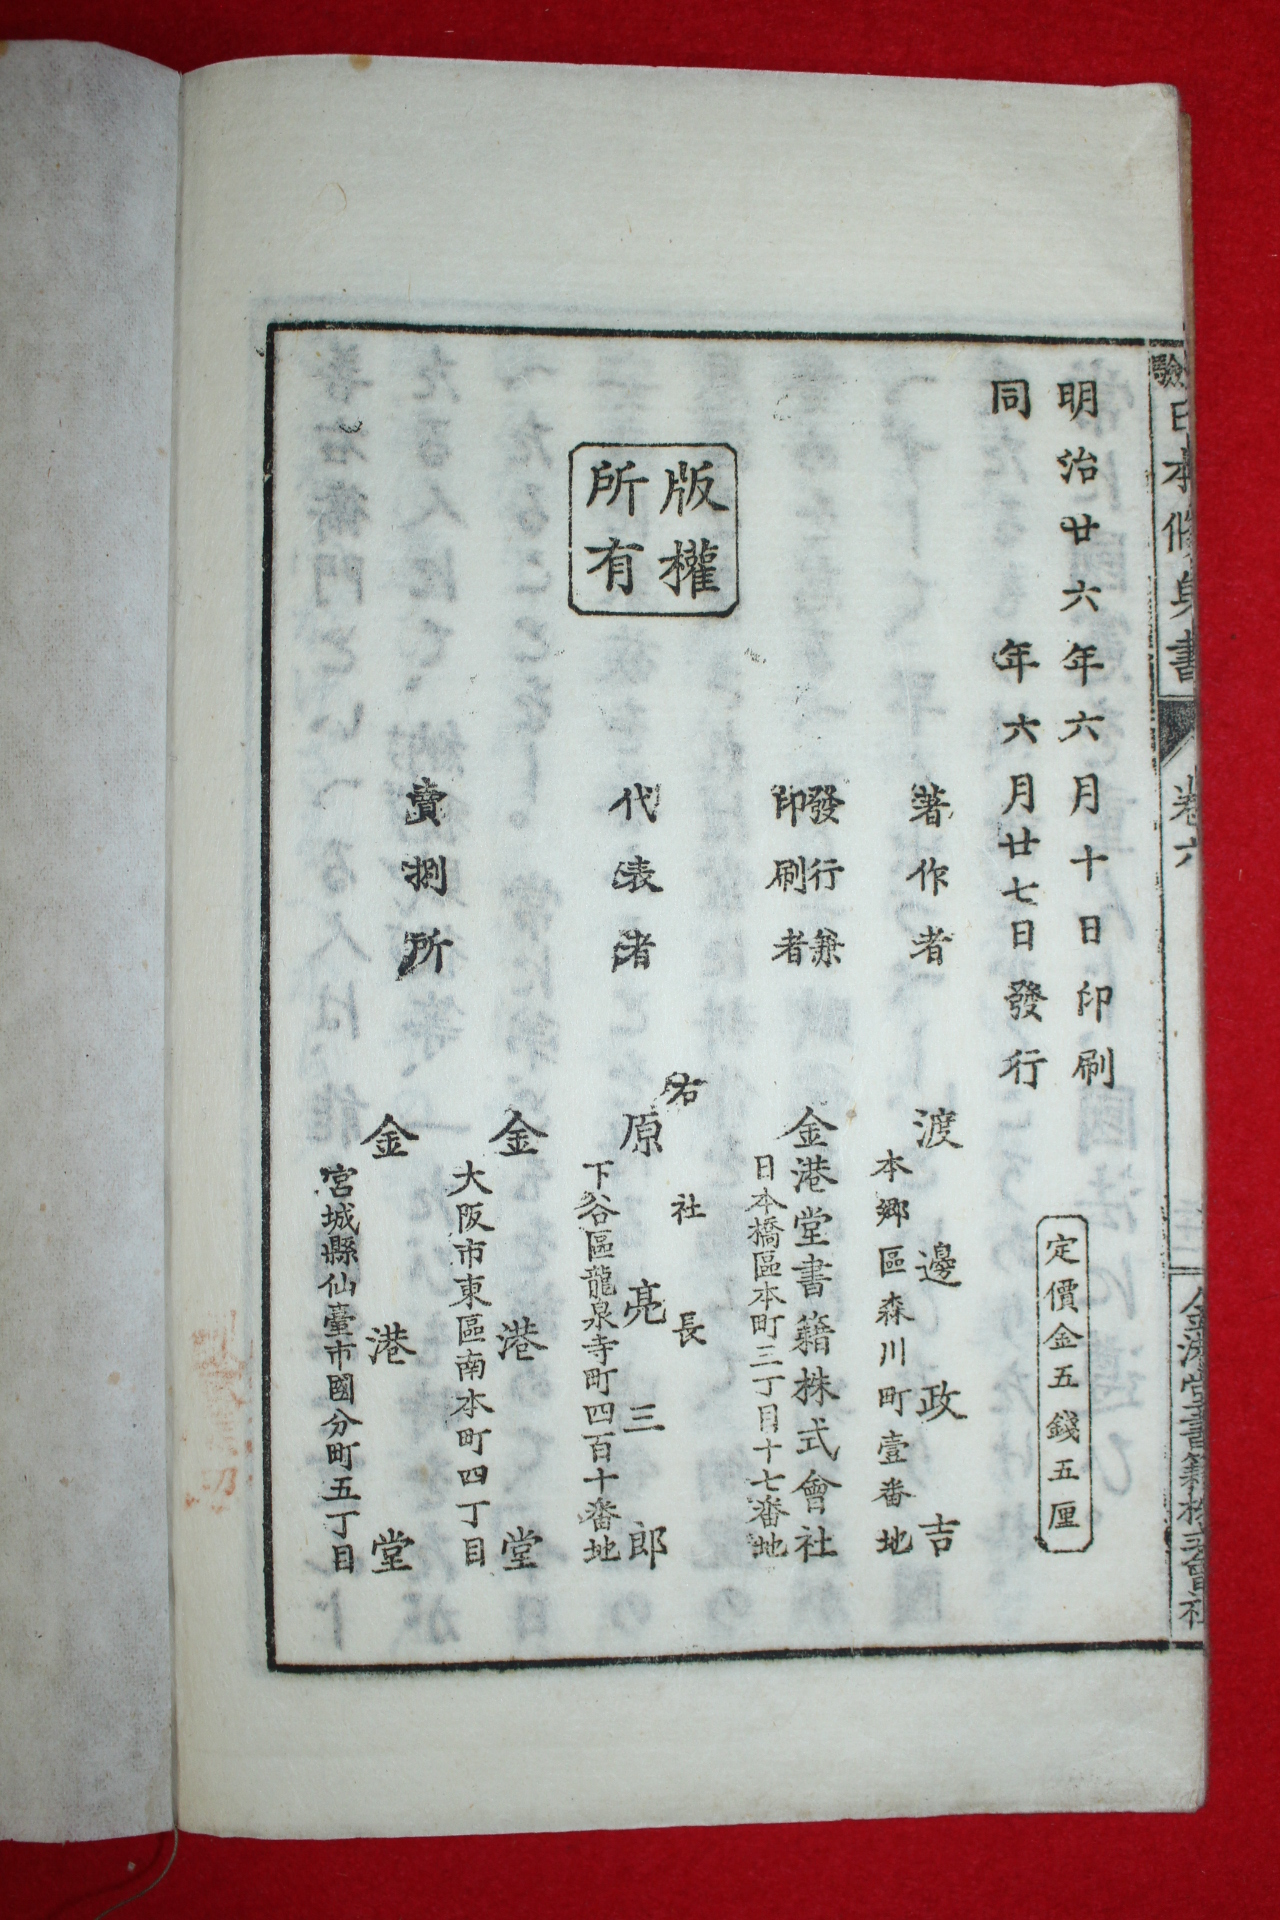 驗日本修身書
卷六
金港堂書籍株式會社
明治廿六年六月十日印刷
同年六月廿七日發行
定價金五錢五厘
著作者
渡邊政吉
本郷區森川町壹番地
發行兼
印刷者
金港堂書籍株式會社
日本橋區本町三丁目十七番地
右社長
代表者
原亮三郎
下谷區龍泉寺町四百十番地
版權
所有
賣捌所
金港堂
大阪市東區南本町四丁目
金港堂
宮城縣仙臺市國分町五丁目